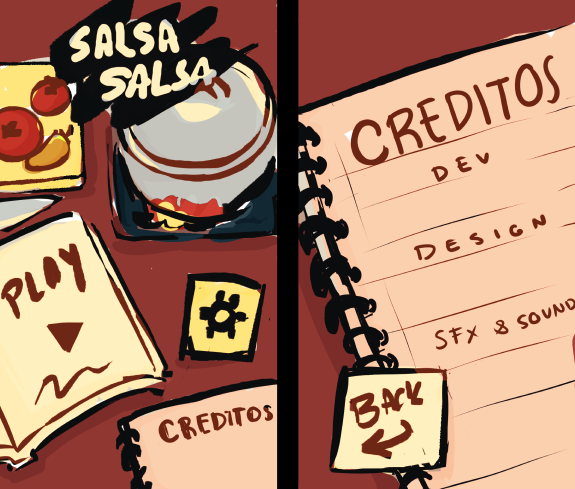 SALSA
SALSA
PLAY
CREDITOS
CREDITOS
DEV
DESIGN
SFX & SOUND
BACK